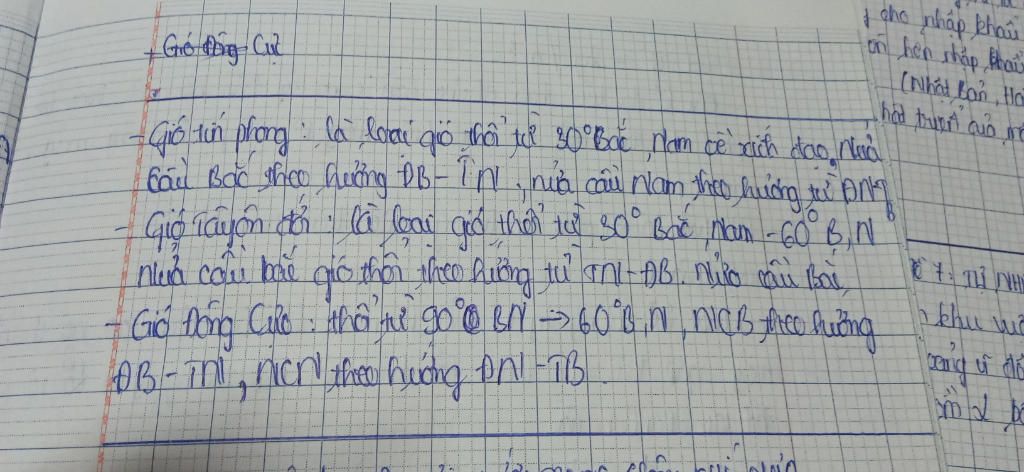 + Gió Đông Cực
- Gió tín phong: là loại gió thổi từ 30° Bắc, Nam về xích đạo. Nửa
cầu Bắc theo hướng ĐB-TN, nửa cầu Nam theo hướng từ ĐN-TB
- Gió Tây ôn đới: là loại gió thổi từ 30° Bắc, Nam - 60° B, N
Nửa cầu bắc gió thổi theo hướng từ TN-ĐB. Nửa cầu Bắc,
- Gió Đông Cực: thổi từ 90° BN → 60° B, N, NCB theo hướng
ĐB-TN, NCN theo hướng ĐN-TB
cho nhập khẩu
(Nhật Bản, Ha
khu vự